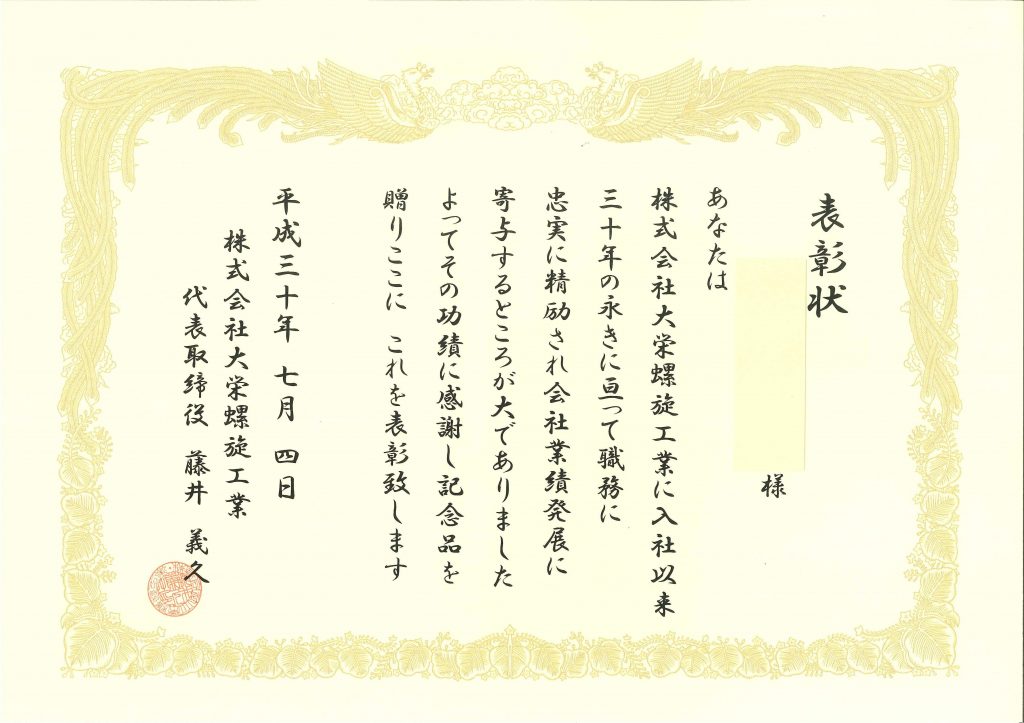 表彰状
様
あなたは
株式会社大栄螺旋工業に入社以来
三十年の永きに亘って職務に
忠実に精励され会社業績発展に
寄与するところが大でありました
よってその功績に感謝し記念品を
贈りここに これを表彰致します
平成三十年 七月 四日
株式会社大栄螺旋工業
代表取締役 藤井 義久